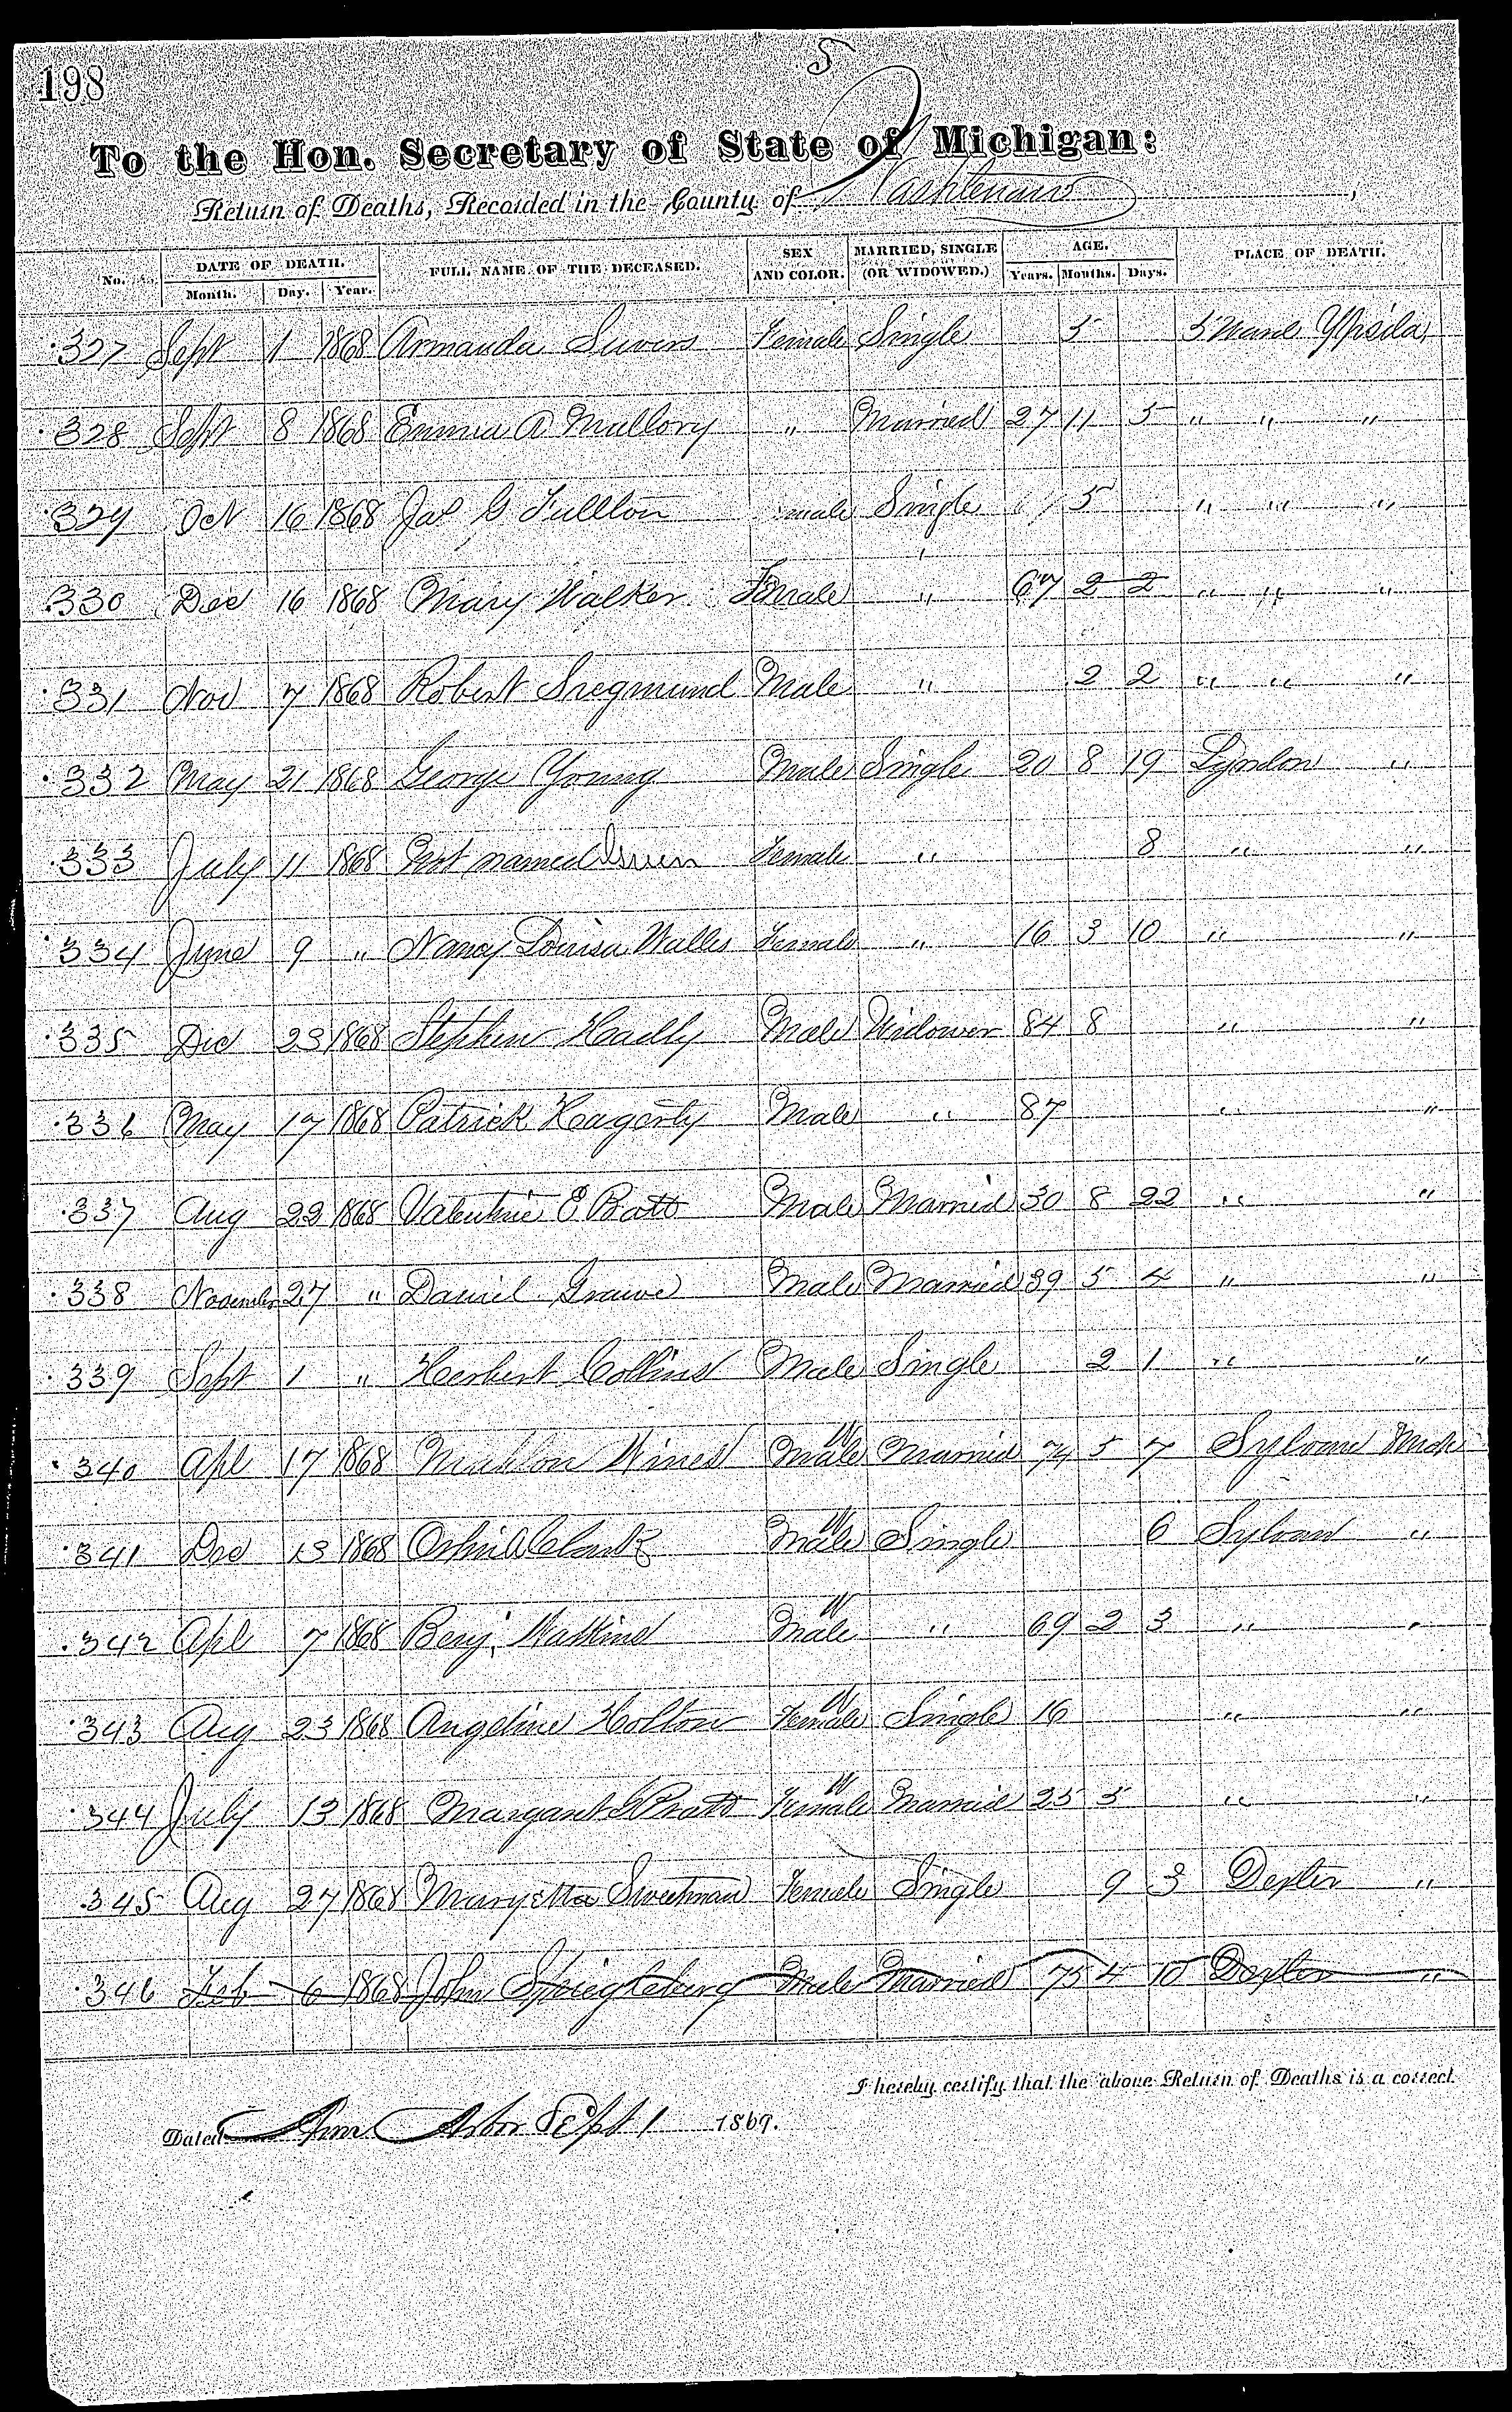 198
To the Hon. Secretary of State of Michigan:
Return of Deaths, Recorded in the County of Washtenaw,
No. DATE OF DEATH. FULL NAME OF THE DECEASED. SEX AND COLOR. MARRIED, SINGLE (OR WIDOWED.) AGE. PLACE OF DEATH.
Month. Day. Year. Years. Months. Days.
327 Sept 1 1868 Armanda Female Single 5 5 Ypsila
328 Sept 8 1868 Emma A Mallory " Married 27 11 5 " " "
329 Oct 16 1868 Jas G Fullton male Single 5 " " "
330 Dec 16 1868 Mary Walker Female " 67 2 2 " " "
331 Nov 7 1868 Robert Siegmund Male " 2 2 " " "
332 May 21 1868 George Young Male Single 20 8 19 Lyndon "
333 July 11 1868 Not named Female " 8 " "
334 June 9 " Nancy Louisa Walles Female " 16 3 10 " "
335 Dec 23 1868 Stephen Hadly Male Widower 84 8 " "
336 May 17 1868 Patrick Hagerty Male " 87 " "
337 Aug 22 1868 Valentine E Batt Male Married 30 8 22 " "
338 November 27 " Daniel Male Married 39 5 4 " "
339 Sept 1 " Herbert Collins Male Single 2 1 " "
340 Apl 17 1868 Mahlon Wines W Male Married 74 5 7 Sylvan Mich
341 Dec 13 1868 Orlin A Clark W Male Single 6 Sylvan "
342 Apl 7 1868 Benj. Watkins W Male " 69 2 3 " "
343 Aug 23 1868 Angeline Holton W Female Single 16 " "
344 July 13 1868 Margaret Pratt W Female Married 25 5 " "
345 Aug 27 1868 Maryetta Sweetman Female Single 9 3 Dexter "
346 Feb 6 1868 John Spiegleburg Male Married 75 4 10 Dexter "
I hereby certify that the above Return of Deaths is a correct
Dated Ann Arbor Sept 1 1869.